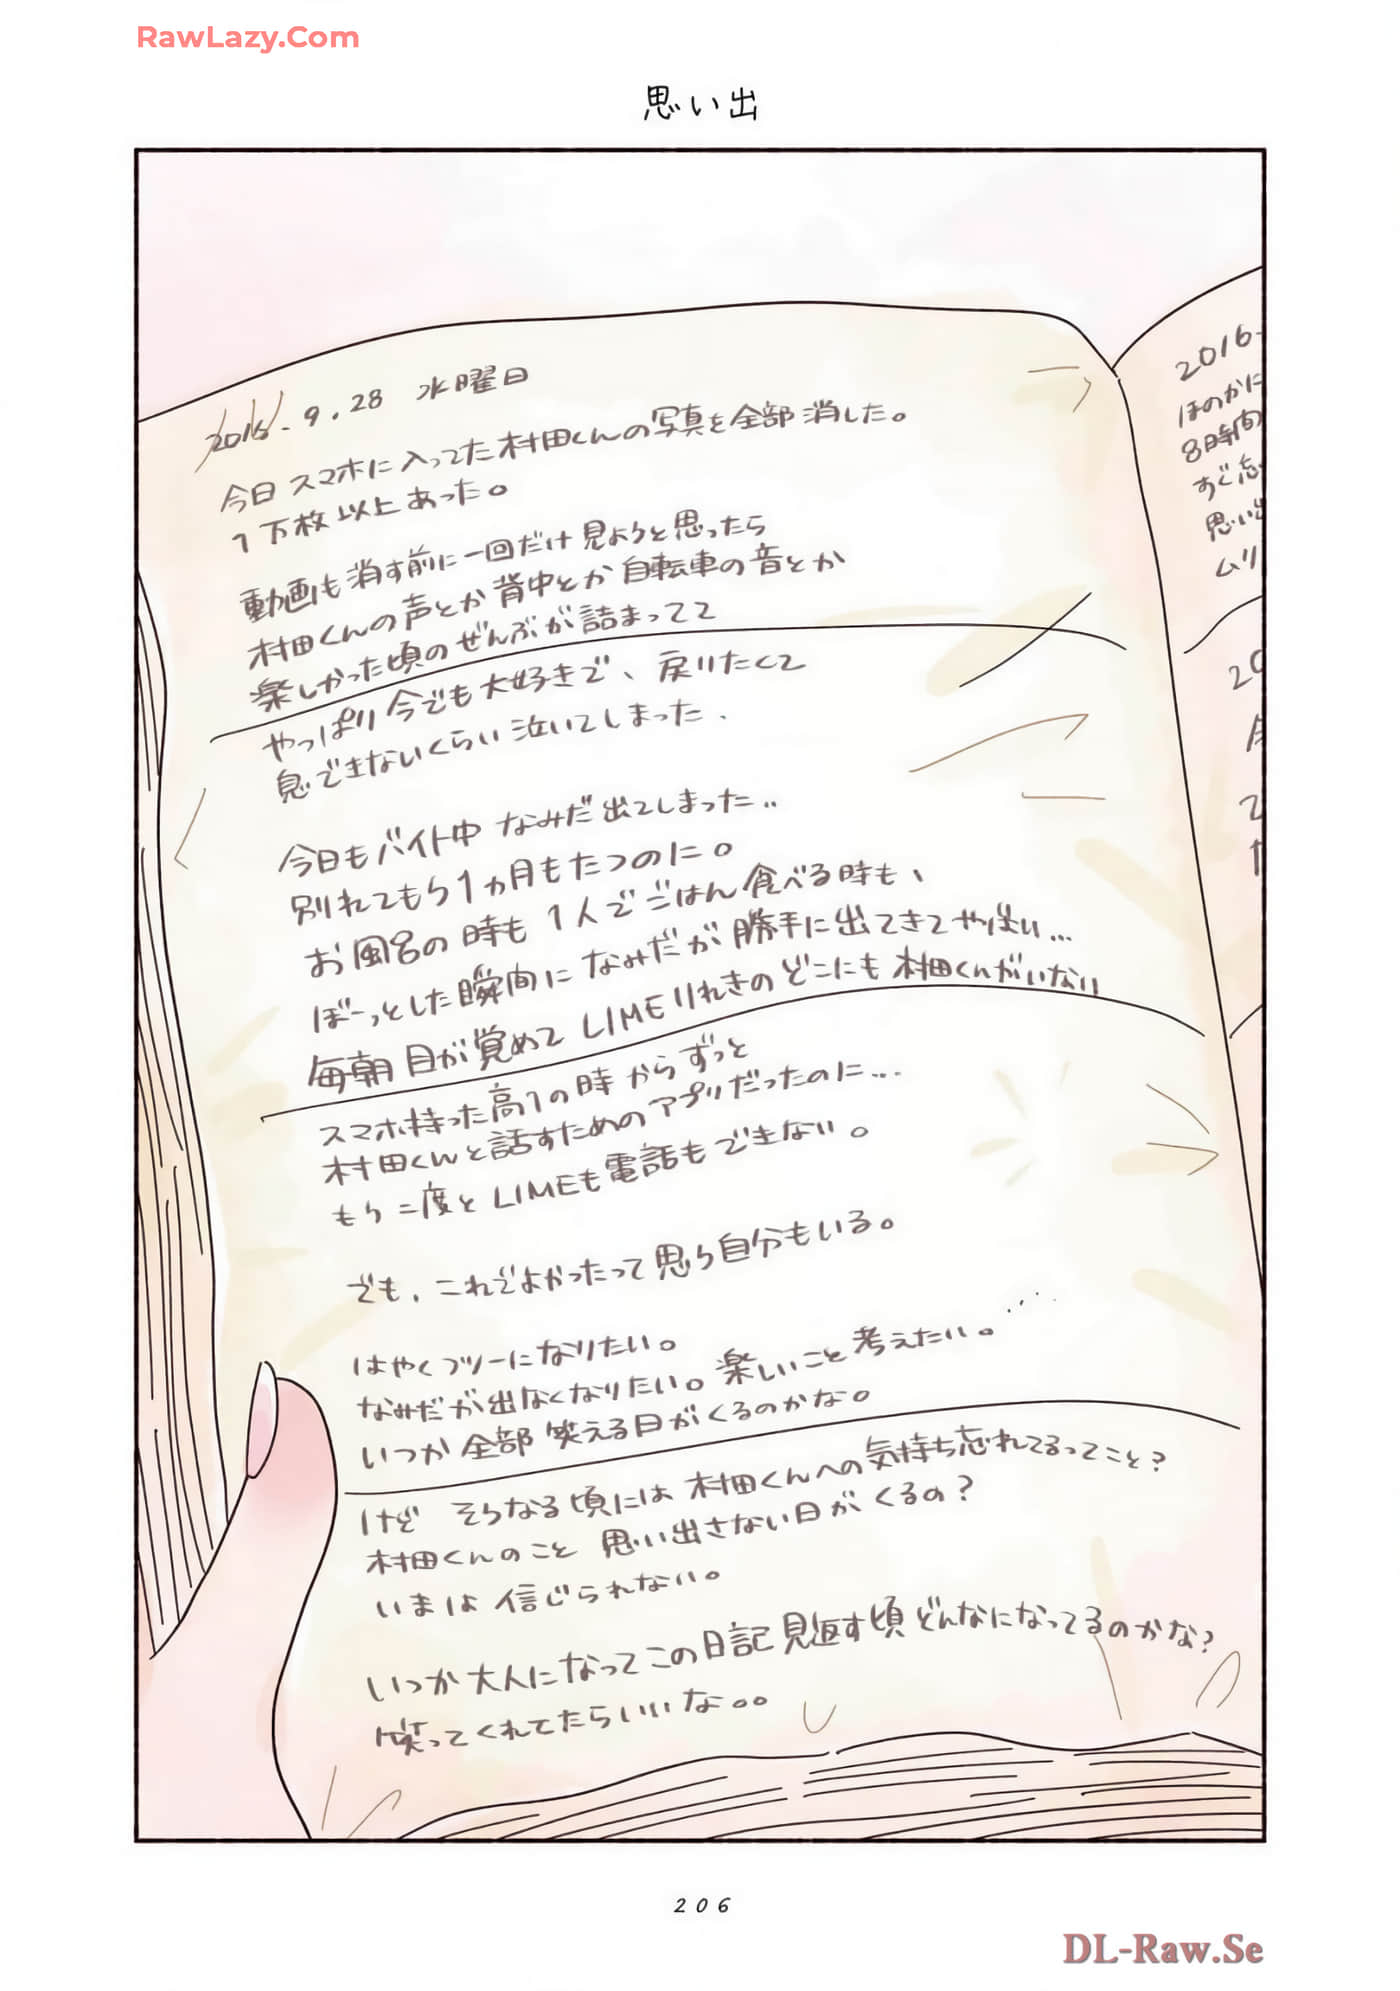 RawLazy.Com
思い出
2016.9.28 水曜日
今日スマホに入ってた村田くんの写真を全部消した。
1万枚以上あった。
動画も消す前に一回だけ見ようと思ったら
村田くんの声とか背中とか自転車の音とか
楽しかった頃のぜんぶが詰まってて
やっぱり今でも大好きで、戻りたくて
息できないくらい泣いてしまった.
今日もバイト中 なみだ出てしまった..
別れてもう1ヵ月もたつのに。
お風呂の時も 1人でごはん食べる時も、
ぼーっとした瞬間になみだが勝手に出てきてやばい...
毎朝目が覚めて LIMEりれきのどこにも村田くんがいない
スマホ持った高1の時からずっと
村田くんと話すためのアプリだったのに...
もう二度とLIMEも電話もできない。
でも、これでよかったって思う自分もいる。
はやくフツーになりたい。
なみだが出なくなりたい。楽しいこと考えたい。.....
いつか全部笑える日がくるのかな。
けど そうなる頃には村田くんへの気持ち忘れてるってこと?
村田くんのこと 思い出さない日がくるの?
いまは信じられない。
いつか大人になってこの日記見返す頃どんなになってるのかな?
笑ってくれてたらいいな。。
2016.
ほのかに
8時間
すぐ忘
思い出
ムリ
20
206
DL-Raw.Se